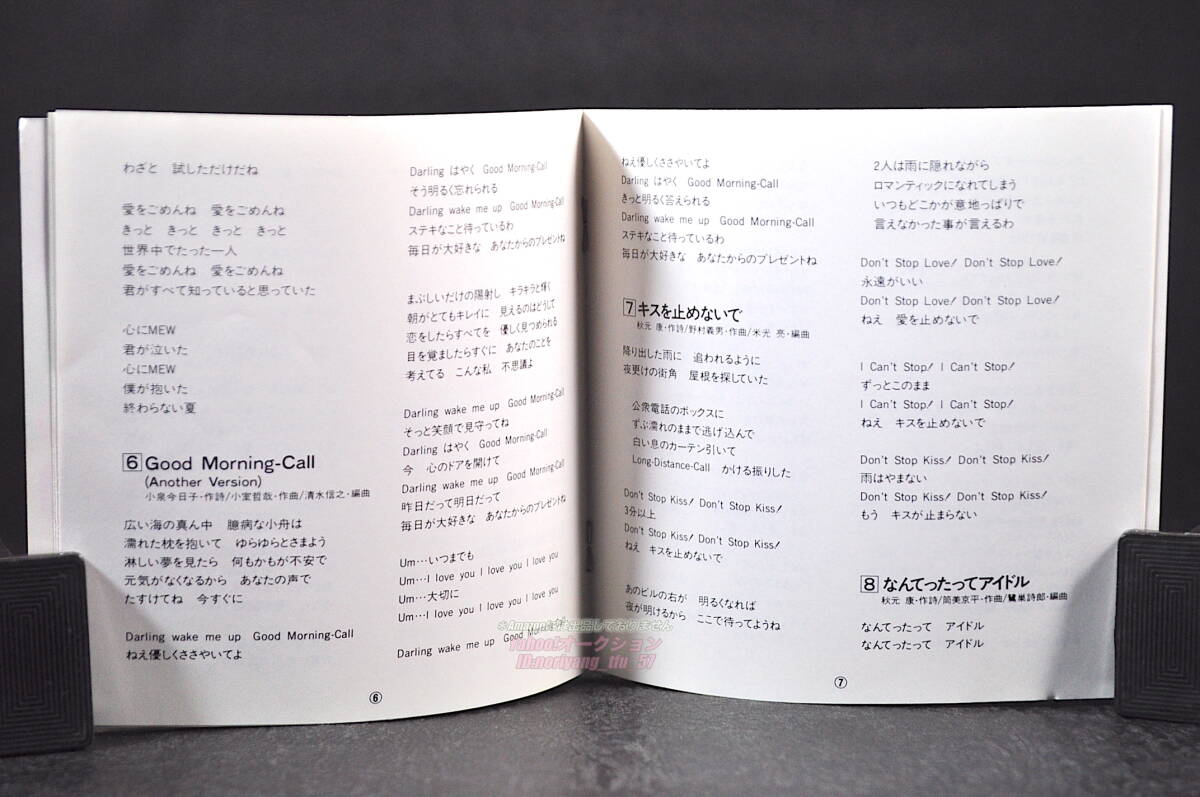 わざと　試しただけだね
愛をごめんね　愛をごめんね
きっと　きっと　きっと　きっと
世界中でたった一人
愛をごめんね　愛をごめんね
君がすべて知っていると思っていた
心にMEW
君が泣いた
心にMEW
僕が抱いた
終わらない夏
6 Good Morning-Call
(Another Version)
小泉今日子・作詩/小室哲哉・作曲/清水信之・編曲
広い海の真ん中　臆病な小舟は
濡れた枕を抱いて　ゆらゆらとさまよう
淋しい夢を見たら　何もかもが不安で
元気がなくなるから　あなたの声で
たすけてね　今すぐに
Darling wake me up　Good Morning-Call
ねえ優しくささやいてよ
Darling はやく　Good Morning-Call
そう明るく忘れられる
Darling wake me up　Good Morning-Call
ステキなこと待っているわ
毎日が大好きな　あなたからのプレゼントね
まぶしいだけの陽射し　キラキラと輝く
朝がとてもキレイに　見えるのはどうして
恋をしたらすべてを　優しく見つめられる
目を覚ましたらすぐに　あなたのことを
考えてる　こんな私　不思議よ
Darling wake me up　Good Morning-Call
そっと笑顔で見守ってね
Darling はやく　Good Morning-Call
今　心のドアを開けて
Darling wake me up　Good Morning-Call
昨日だって明日だって
毎日が大好きな　あなたからのプレゼントね
Um…いつまでも
Um…I love you I love you I love you
Um…大切に
Um…I love you I love you I love you
Darling wake me up　Good Morning-Call
⑥
ねえ優しくささやいてよ
Darling はやく　Good Morning-Call
きっと明るく答えられる
Darling wake me up　Good Morning-Call
ステキなこと待っているわ
毎日が大好きな　あなたからのプレゼントね
7 キスを止めないで
秋元 康・作詩/野村義男・作曲/米光 亮・編曲
降り出した雨に　追われるように
夜更けの街角　屋根を探していた
公衆電話のボックスに
ずぶ濡れのままで逃げ込んで
白い息のカーテン引いて
Long-Distance-Call　かける振りした
Don't Stop Kiss! Don't Stop Kiss!
3分以上
Don't Stop Kiss! Don't Stop Kiss!
ねえ　キスを止めないで
あのビルの右が　明るくなれば
夜が明けるから　ここで待ってようね
2人は雨に隠れながら
ロマンティックになれてしまう
いつもどこかが意地っぱりで
言えなかった事が言えるわ
Don't Stop Love! Don't Stop Love!
永遠がいい
Don't Stop Love! Don't Stop Love!
ねえ　愛を止めないで
I Can't Stop! I Can't Stop!
ずっとこのまま
I Can't Stop! I Can't Stop!
ねえ　キスを止めないで
Don't Stop Kiss! Don't Stop Kiss!
雨はやまない
Don't Stop Kiss! Don't Stop Kiss!
もう　キスが止まらない
8 なんてったってアイドル
秋元 康・作詩/筒美京平・作曲/鷺巣詩郎・編曲
なんてったって　アイドル
なんてったって　アイドル
⑦
※Amazonには出品しておりません
Yahoo!オークション
ID:noriyang_tfu_57